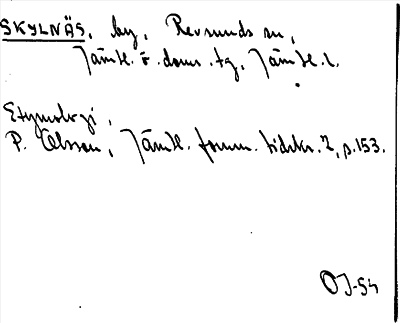 SKYLNÄS, by, Revsunds sn,
Jämtl. ö. doms. tg, Jämtl. l.
Etymologi,
P. Olsson, Jämtl. fornm. tidskr. 2, p. 153.
OJ-54